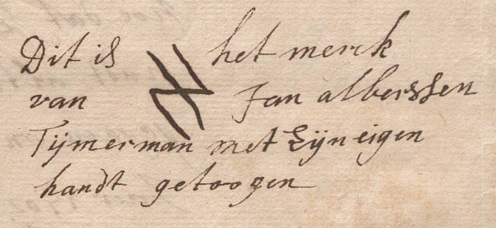 Dit is het merck
van Jan alberssen
Tijmerman met zijn eigen
handt getoogen